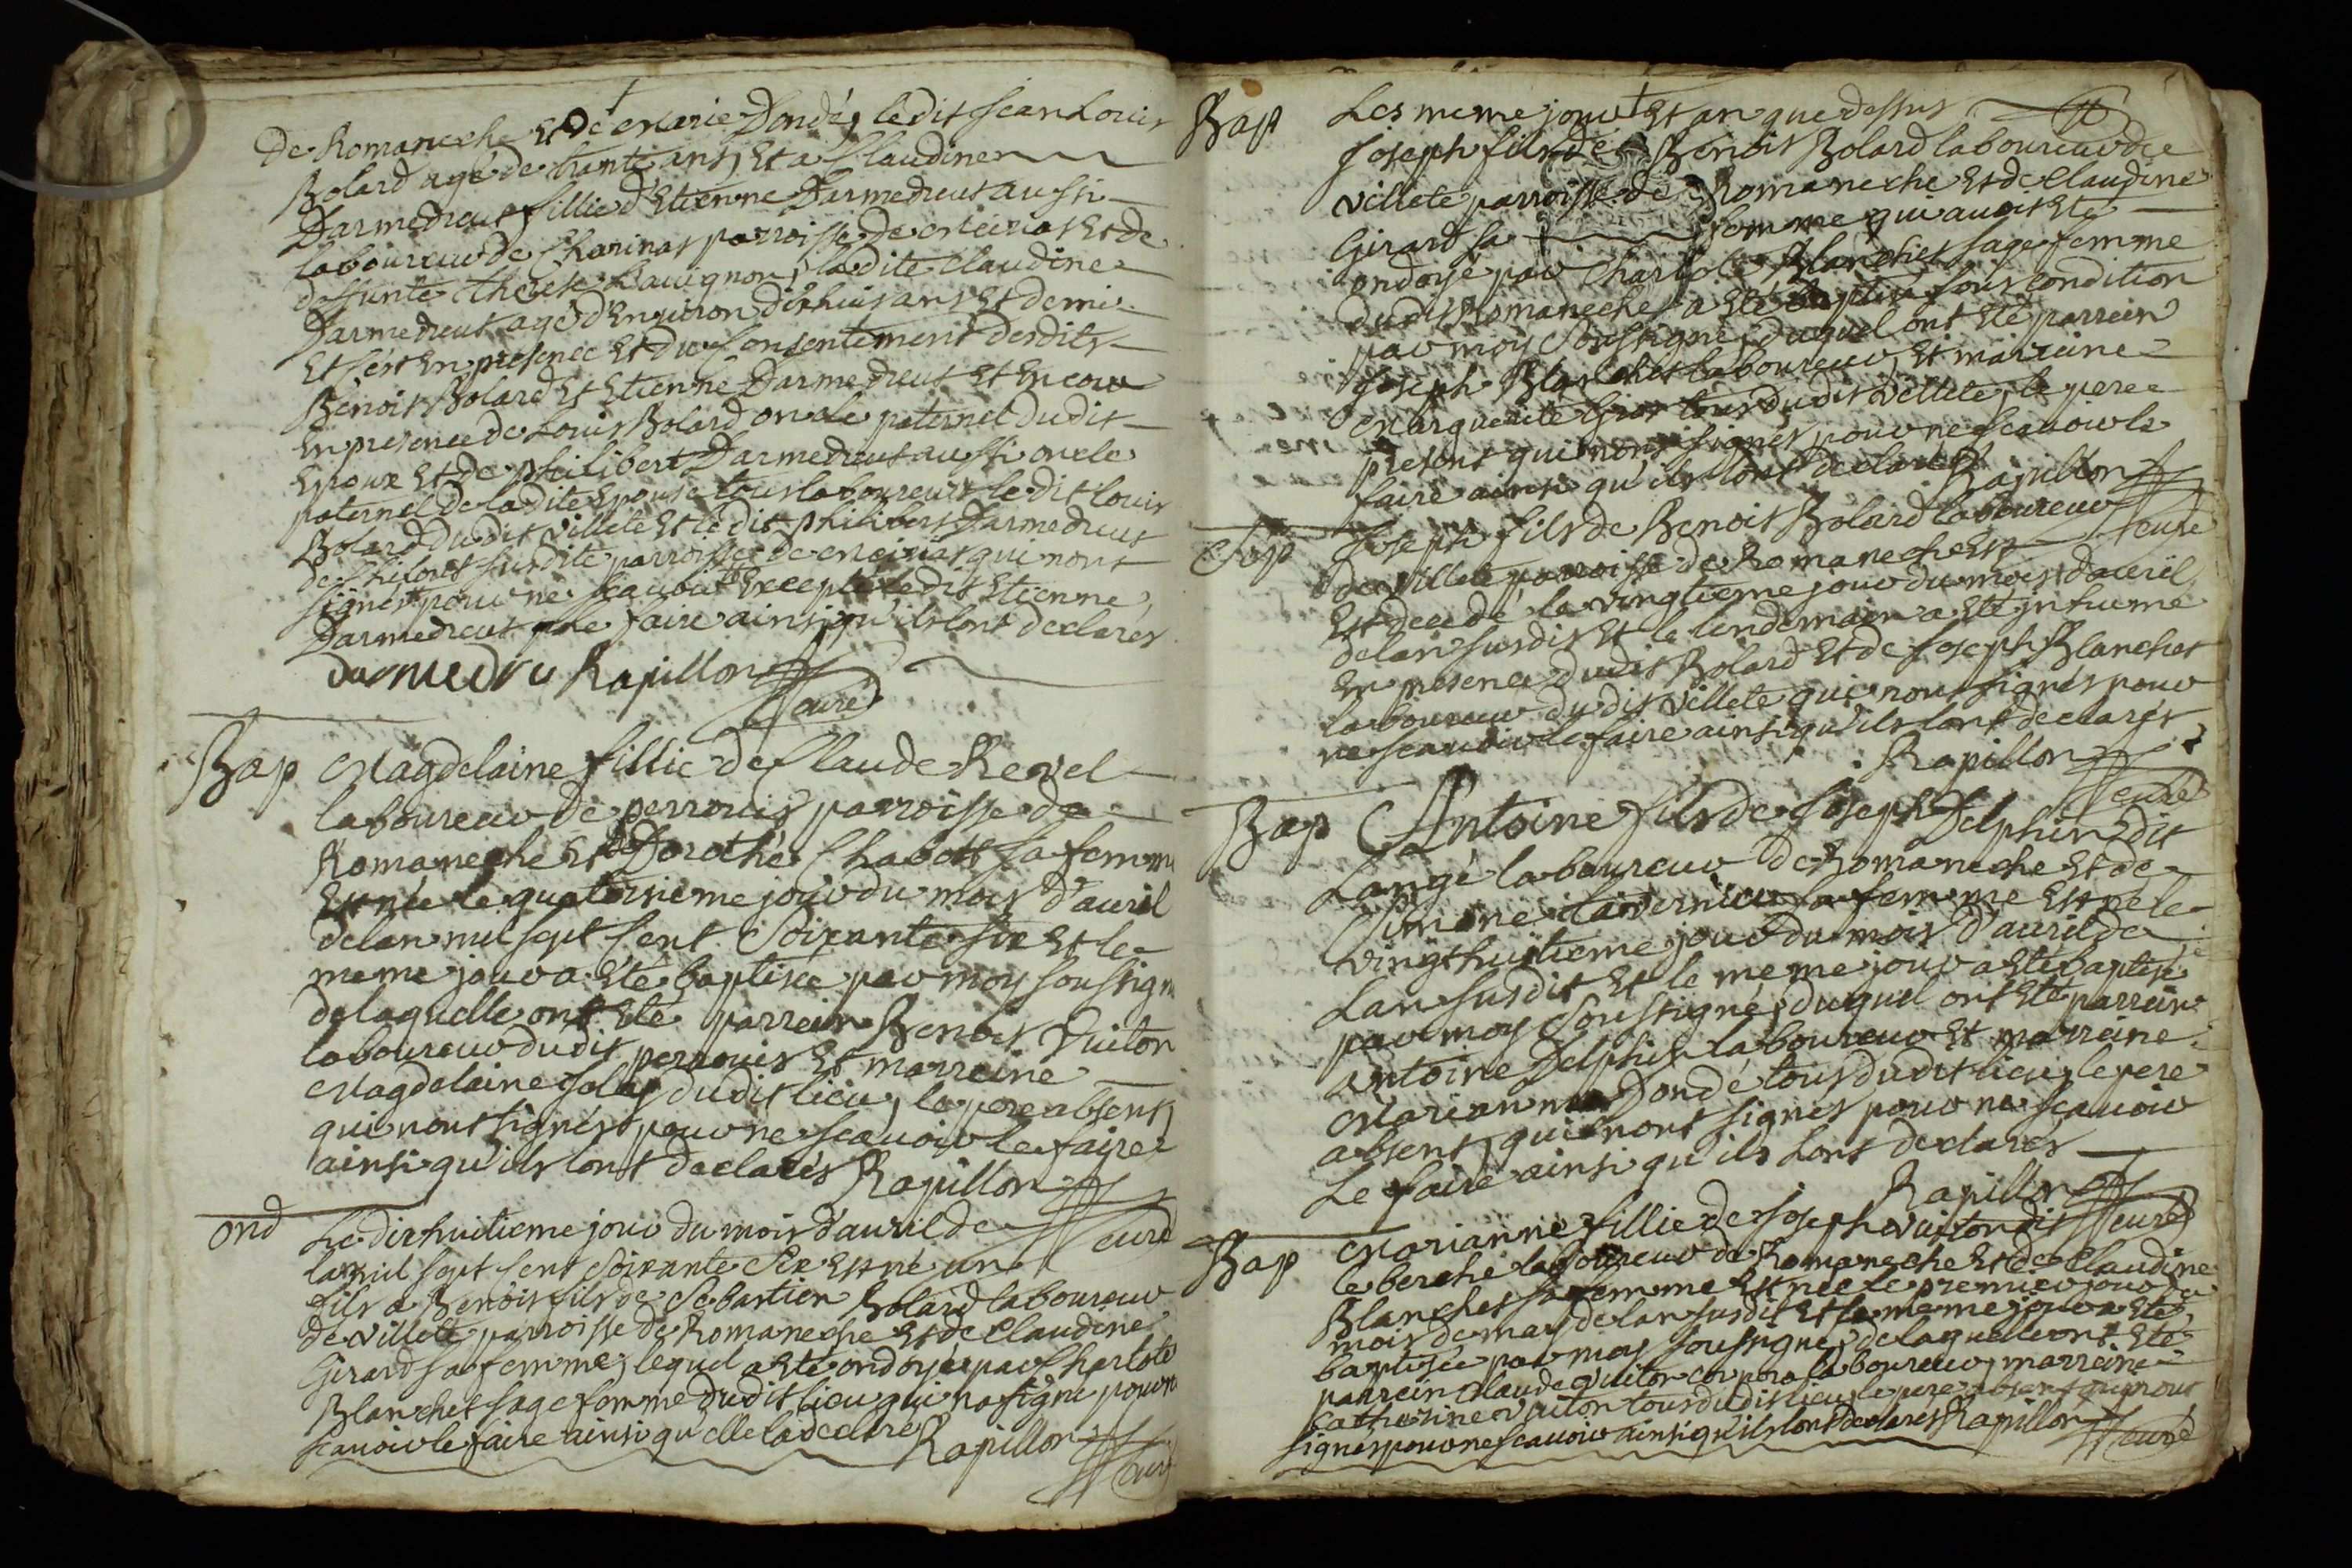 de Romaneche Et de Marie Dondé, ledit Jean Louis
Bolard agé de trante ans, Et a Claudine
Darmedreut fillie d'Etienne Darmedreut aussi
laboureur de Charinas parroisse de Meirias Et de
deffunte therese Lauignon, ladite Claudine
Darmedreut agé d'Enuiron dixhuis ans Et demi
Et cest En presence Et du Consentement desdits
Benois Bolard Et Etienne Darmedreut Et Encour
En presence de Louis Bolard oncle paternel dudit
Epoux Et de philibert Darmedreut aussi oncle
paternel de ladite Epouse tous laboureurs ledit Louis
Bolard dudit Villete Et ledit philibert Darmedreut
de susdite parroisse de Meirias qui nont
signés pour ne Excepté ledit Etienne
Darmedreut faire ainsi qu'ils lont declarés
darmedru Rapillon
curé
Bap Magdelaine fillie de Claude Revel
laboureur de perrouis parroisse de
Romaneche Et de Dorothé Chabott sa femme
Est née le quatorsieme jour du mois d'auril
delan mil sept Cent Soixante Six Et le
meme jour a Eté baptisée par moy soussigné
delaquelle ont Eté parrein Benois Vuiton
laboureur dudit perrouis Et marreine
Magdelaine dudit lieu, le pere absent
qui nont signés pour ne scauoir le faire
ainsi qu'ils lont declarés Rapillon
curé
ond Le dixhuitieme jour du mois d'auril de
lan mil sept Cent Soixante Six Est né un
fils a Benois fils de Sebastien Bolard laboureur
de villete parroisse de Romaneche Et de Claudine
Girard sa femme, lequel a Eté ondoyé par Charlote
Blanchet sage femme dudit lieu qui na signé pour ne
scauoir le faire ainsi qu'elle la declaré Rapillon
curé
Bap Les meme jour Et an que dessus
Joseph fils de Benois Bolard laboureur de
villete parroisse de Romaneche Et de Claudine
Girard sa femme qui auoit Eté
ondoyé par Charlote Blanchet sage femme
dudit Romaneche a Eté baptisé sous condition
par moy soussigné, duquel ont Eté parrein
Joseph Blanchet laboureur, Et marreine
Marguerite Gros tous dudit Villete, le pere
present qui nont signés pour ne scauoir le
faire ainsi qu'ils lont declarés Rapillon
curé
Joseph fils de Benois Bolard laboureur
de Villete parroisse de Romaneche Est
Est decedé le vingtieme jour du mois d'auril
delan susdit Et le lendemain a Eté inhumé
En presence dudit Bolard Et de Joseph Blanchet
laboureur dudit Villete qui nont signés pour
ne scauoir le faire ainsi qu'ils lont declarés
Rapillon
curé
Bap Antoine fils de Joseph Delphin dit
Langé laboureur de Romaneche Et de
Simone tavernier sa femme Est né le
vingthuitieme jour du mois d'auril de
Lan susdit Et le meme jour a Eté baptisé
par moy Soussigné, duquel ont Eté parrein
Antoine Delphin laboureur Et marreine
Marianne Dondé tous dudit lieu, le pere
absent, qui nont signés pour ne scauoir
Le faire ainsi qu'ils Lont declarés
Rapillon
curé
Bap Marianne fillie de Joseph Vuiton dit
le berche laboureur de Romaneche Et de Claudine
Blanchet sa femme Est née le premier jour du
mois de may delan susdit Et le meme jour a Eté
baptisée par moy soussigné, delaquelle ont Eté
parrein Claude Vuiton laboureur, marreine
Catherine Vuiton tous dudit lieu, le pere absent qui nont
signés pour ne scauoir ainsi qu'ils lont declarés Rapillon
curé